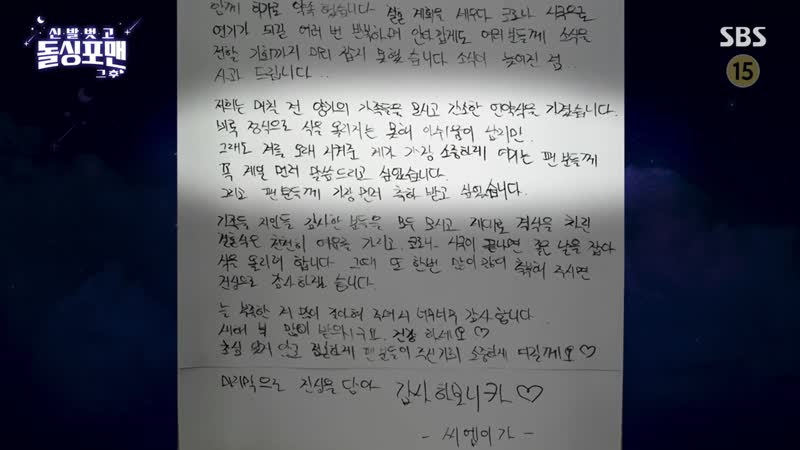 신발벗고
돌싱포맨
그후
SBS
15
함께 하기로 약속 했습니다. 결혼 계획을 세우다 코로나 시국으로
연기가 되길 여러 번 반복하며 안타깝게도 여러분들께 소식을
전할 기회까지 미리 잡지 못했습니다 소식이 늦어진 점..
사과 드립니다..
저희는 며칠 전 양가의 가족들을 모시고 간소한 언약식을 가졌습니다.
비록 정식으로 식을 올리지는 못해 아쉬움이 남지만.
그래도 저를 오래 지켜준 제가 가장 소중하게 여기는 팬 분들께
꼭 제일 먼저 말씀드리고 싶었습니다.
그리고 팬 분들께 가장 먼저 축하 받고 싶었습니다.
가족들 지인들 감사한 분들을 모두 모시고 제대로 격식을 차린
결혼식은 천천히 여유를 가지고. 코로나 시국이 끝나면 좋은 날을 잡아
식을 올리려 합니다. 그때 또 한번 많이많이 축복해 주시면
진심으로 감사하겠습니다.
늘 부족한 저 많이 좋아해 주셔서 너무너무 감사합니다
새해 복 많이 받으시구요. 건강 하세요♡
초심 잃지 않고 팬 분들이 주신 소중하게 여길께요♡
마지막으로 진심을 담아 감사하보니카♡
- 씨엘이가 -